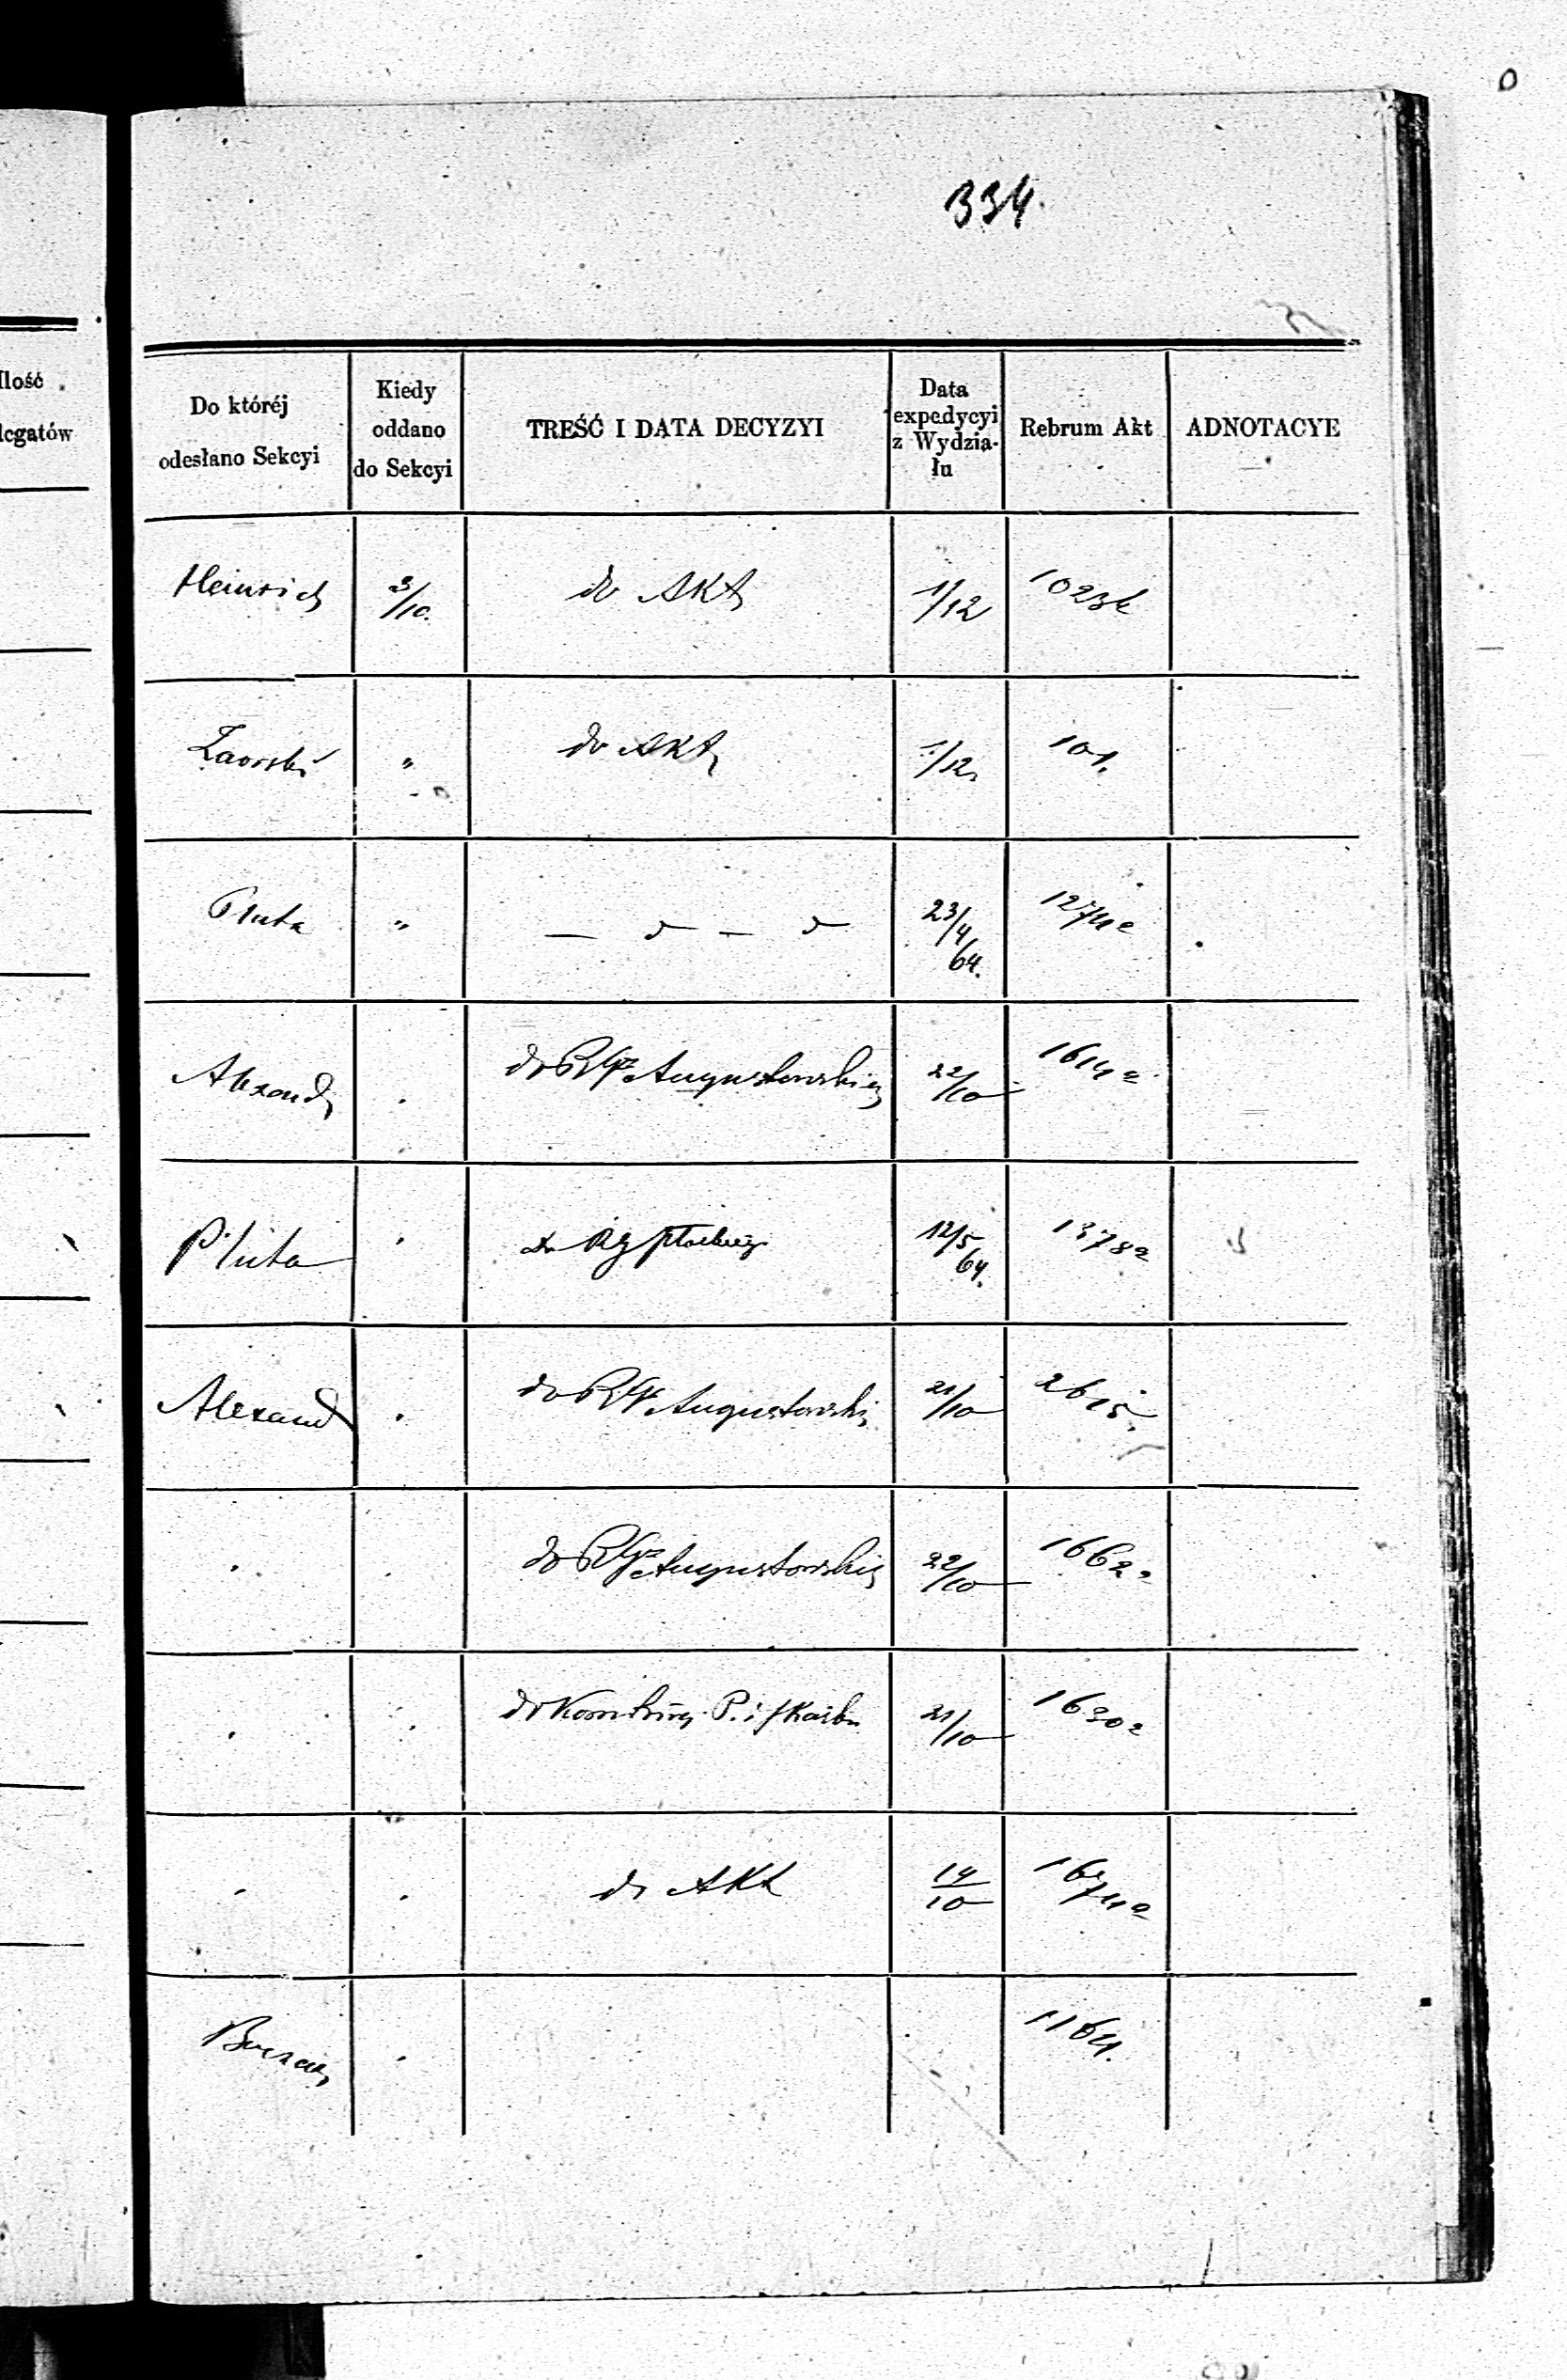 334.
Ilość
legatów
Do któréj odesłano Sekcyi | Kiedy oddano do Sekcyi | TREŚĆ I DATA DECYZYI | Data expedycyi z Wydziału | Rebrum Akt | ADNOTACYE
Heinrich 3/10. do Akt 1/12
" do Akt 1/12 101.
Pluta " — d — d 23/4 64. 1274a
Alexand do RG Augustowskiej 22/10 1614a
Pluta do RG Płockiej 12/5 64. 1378a
Alexand do RG Augustowski 21/10 2615.
do RG Augustowskiej 22/10 1662a
P. i Skarbu 21/10 1630a
do Akt 14/10 1674a
1164.